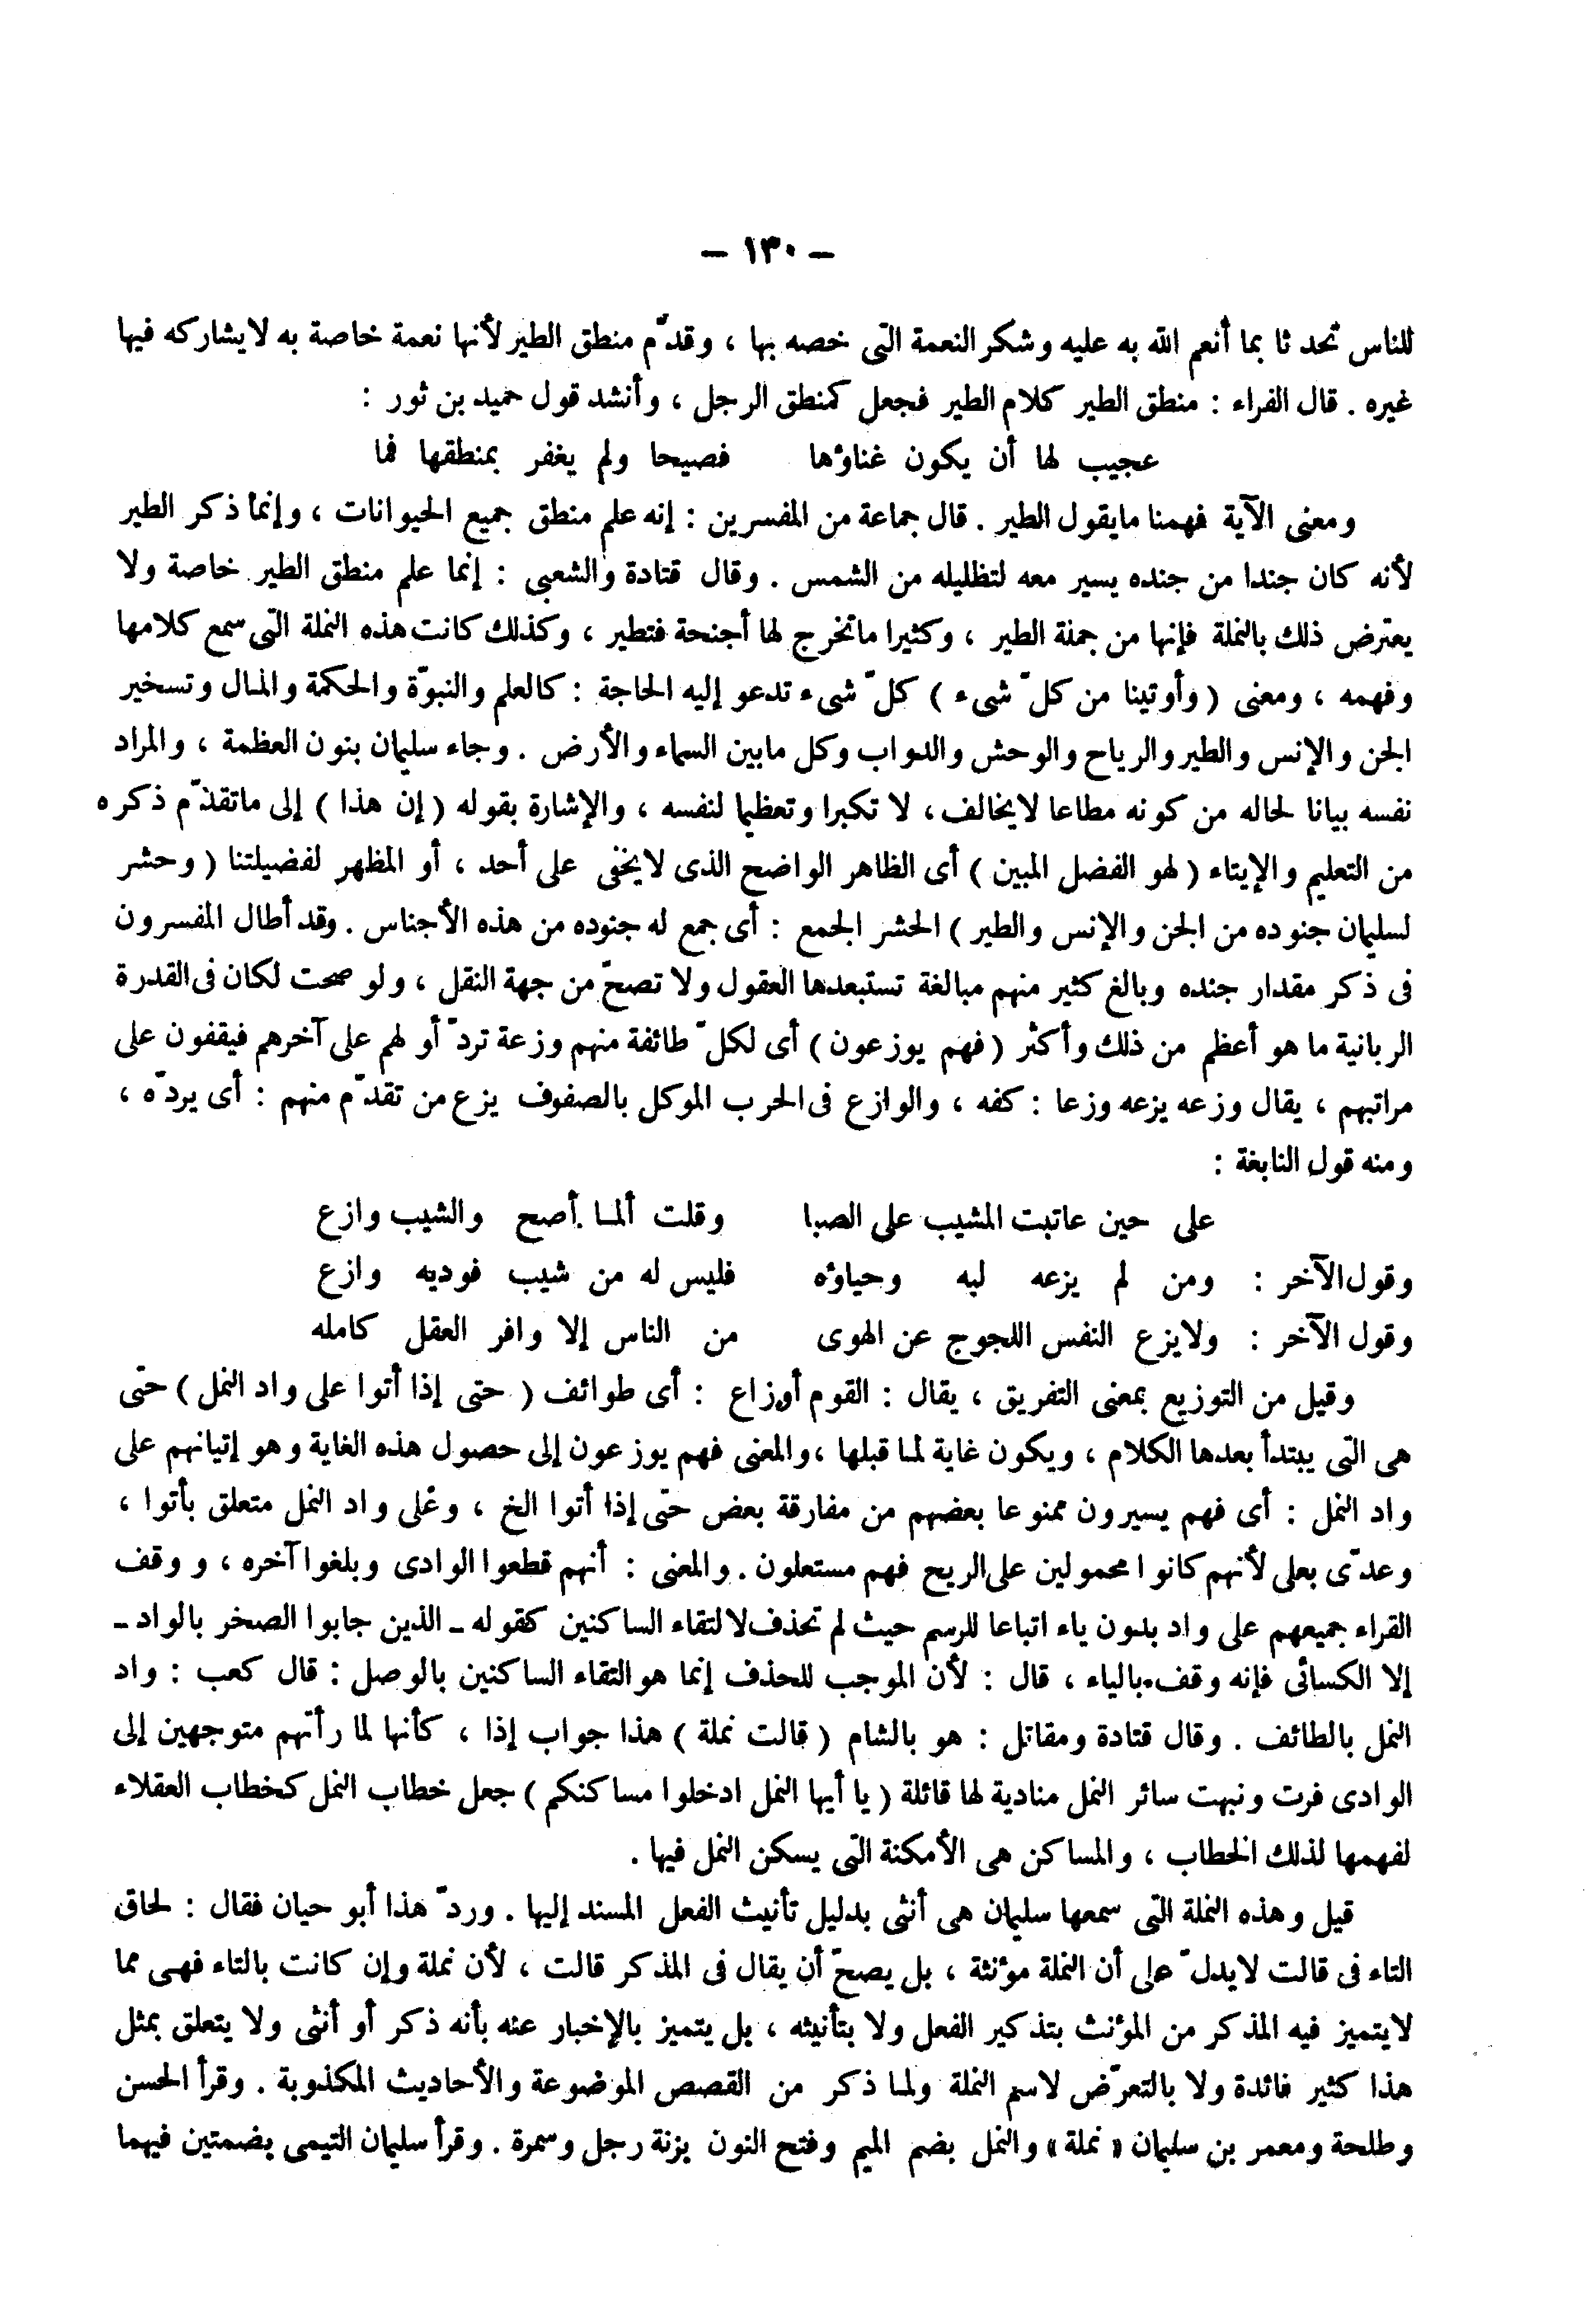 – ١٣٠ –
للناس تحدثا بما أنعم الله به عليه وشكر النعمة التى خصه بها ، وقدّم منطق الطير لأنها نعمة خاصة به لايشاركه فيها
غيره . قال الفراء : منطق الطير كلام الطير فجعل كمنطق الرجل ، وأنشد قول حميد بن ثور :
عجيب لها أن يكون غناؤها فصيحا ولم يغفر بمنطقها فما
ومعنى الآية فهمنا مايقول الطير . قال جماعة من المفسرين : إنه علم منطق جميع الحيوانات ، وإنما ذكر الطير
لأنه كان جندا من جنده يسير معه لتظليله من الشمس . وقال قتادة والشعبى : إنما علم منطق الطير خاصة ولا
يعترض ذلك بالنملة فإنها من جملة الطير ، وكثيرا ماتخرج لها أجنحة فتطير ، وكذلك كانت هذه النملة التى سمع كلامها
وفهمه ، ومعنى ( وأوتينا من كلّ شىء ) كلّ شىء تدعو إليه الحاجة : كالعلم والنبوّة والحكمة والمال وتسخير
الجن والإنس والطير والرياح والوحش والدواب وكل مابين السماء والأرض . وجاء سليمان بنون العظمة ، والمراد
نفسه بيانا لحاله من كونه مطاعا لايخالف ، لا تكبرا وتعظيما لنفسه ، والإشارة بقوله ( إن هذا ) إلى ماتقدّم ذكره
من التعليم والإيتاء ( لهو الفضل المبين ) أى الظاهر الواضح الذى لايخفى على أحد ، أو المظهر لفضيلتنا ( وحشر
لسليمان جنوده من الجن والإنس والطير ) الحشر الجمع : أى جمع له جنوده من هذه الأجناس . وقد أطال المفسرون
فى ذكر مقدار جنده وبالغ كثير منهم مبالغة تستبعدها العقول ولا تصحّ من جهة النقل ، ولو صحت لكان فى القدرة
الربانية ما هو أعظم من ذلك وأكثر ( فهم يوزعون ) أى لكلّ طائفة منهم وزعة تردّ أولهم على آخرهم فيقفون على
مراتبهم ، يقال وزعه يزعه وزعا : كفه ، والوازع فى الحرب الموكل بالصفوف يزع من تقدّم منهم : أى يردّه ،
ومنه قول النابغة :
على حين عاتبت المشيب على الصبا وقلت ألما أصح والشيب وازع
وقول الآخر : ومن لم يزعه لبه وحياؤه فليس له من شيب فوديه وازع
وقول الآخر : ولايزع النفس اللجوج عن الهوى من الناس إلا وافر العقل كامله
وقيل من التوزيع بمعنى التفريق ، يقال : القوم أوزاع : أى طوائف ( حتى إذا أتوا على واد النمل ) حتى
هى التى يبتدأ بعدها الكلام ، ويكون غاية لما قبلها ، والمعنى فهم يوزعون إلى حصول هذه الغاية وهو إتيانهم على
واد النمل : أى فهم يسيرون ممنوعا بعضهم من مفارقة بعض حتى إذا أتوا الخ ، وعلى واد النمل متعلق بأتوا ،
وعدّى بعلى لأنهم كانوا محمولين على الريح فهم مستعلون . والمعنى : أنهم قطعوا الوادى وبلغوا آخره ، ووقف
القراء جميعهم على واد بدون ياء اتباعا للرسم حيث لم تحذف لالتقاء الساكنين كقوله ــ الذين جابوا الصخر بالواد ــ
إلا الكسائى فإنه وقف بالياء ، قال : لأن الموجب للحذف إنما هو التقاء الساكنين بالوصل : قال كعب : واد
النمل بالطائف . وقال قتادة ومقاتل : هو بالشام ( قالت نملة ) هذا جواب إذا ، كأنها لما رأتهم متوجهين إلى
الوادى فرت ونبهت سائر النمل منادية لها قائلة ( يا أيها النمل ادخلوا مساكنكم ) جعل خطاب النمل كخطاب العقلاء
لفهمها لذلك الخطاب ، والمساكن هى الأمكنة التى يسكن النمل فيها .
قيل وهذه النملة التى سمعها سليمان هى أنثى بدليل تأنيث الفعل المسند إليها . وردّ هذا أبو حيان فقال : لحاق
التاء فى قالت لايدلّ على أن النملة مؤنثة ، بل يصحّ أن يقال فى المذكر قالت ، لأن نملة وإن كانت بالتاء فهى مما
لايتميز فيه المذكر من المؤنث بتذكير الفعل ولا بتأنيثه ، بل يتميز بالإخبار عنه بأنه ذكر أو أنثى ولا يتعلق بمثل
هذا كثير فائدة ولا بالتعرّض لاسم النملة ولما ذكر من القصص الموضوعة والأحاديث المكذوبة . وقرأ الحسن
وطلحة ومعمر بن سليمان « نملة » والنمل بضم الميم وفتح النون بزنة رجل وسمرة . وقرأ سليمان التيمى بضمتين فيهما